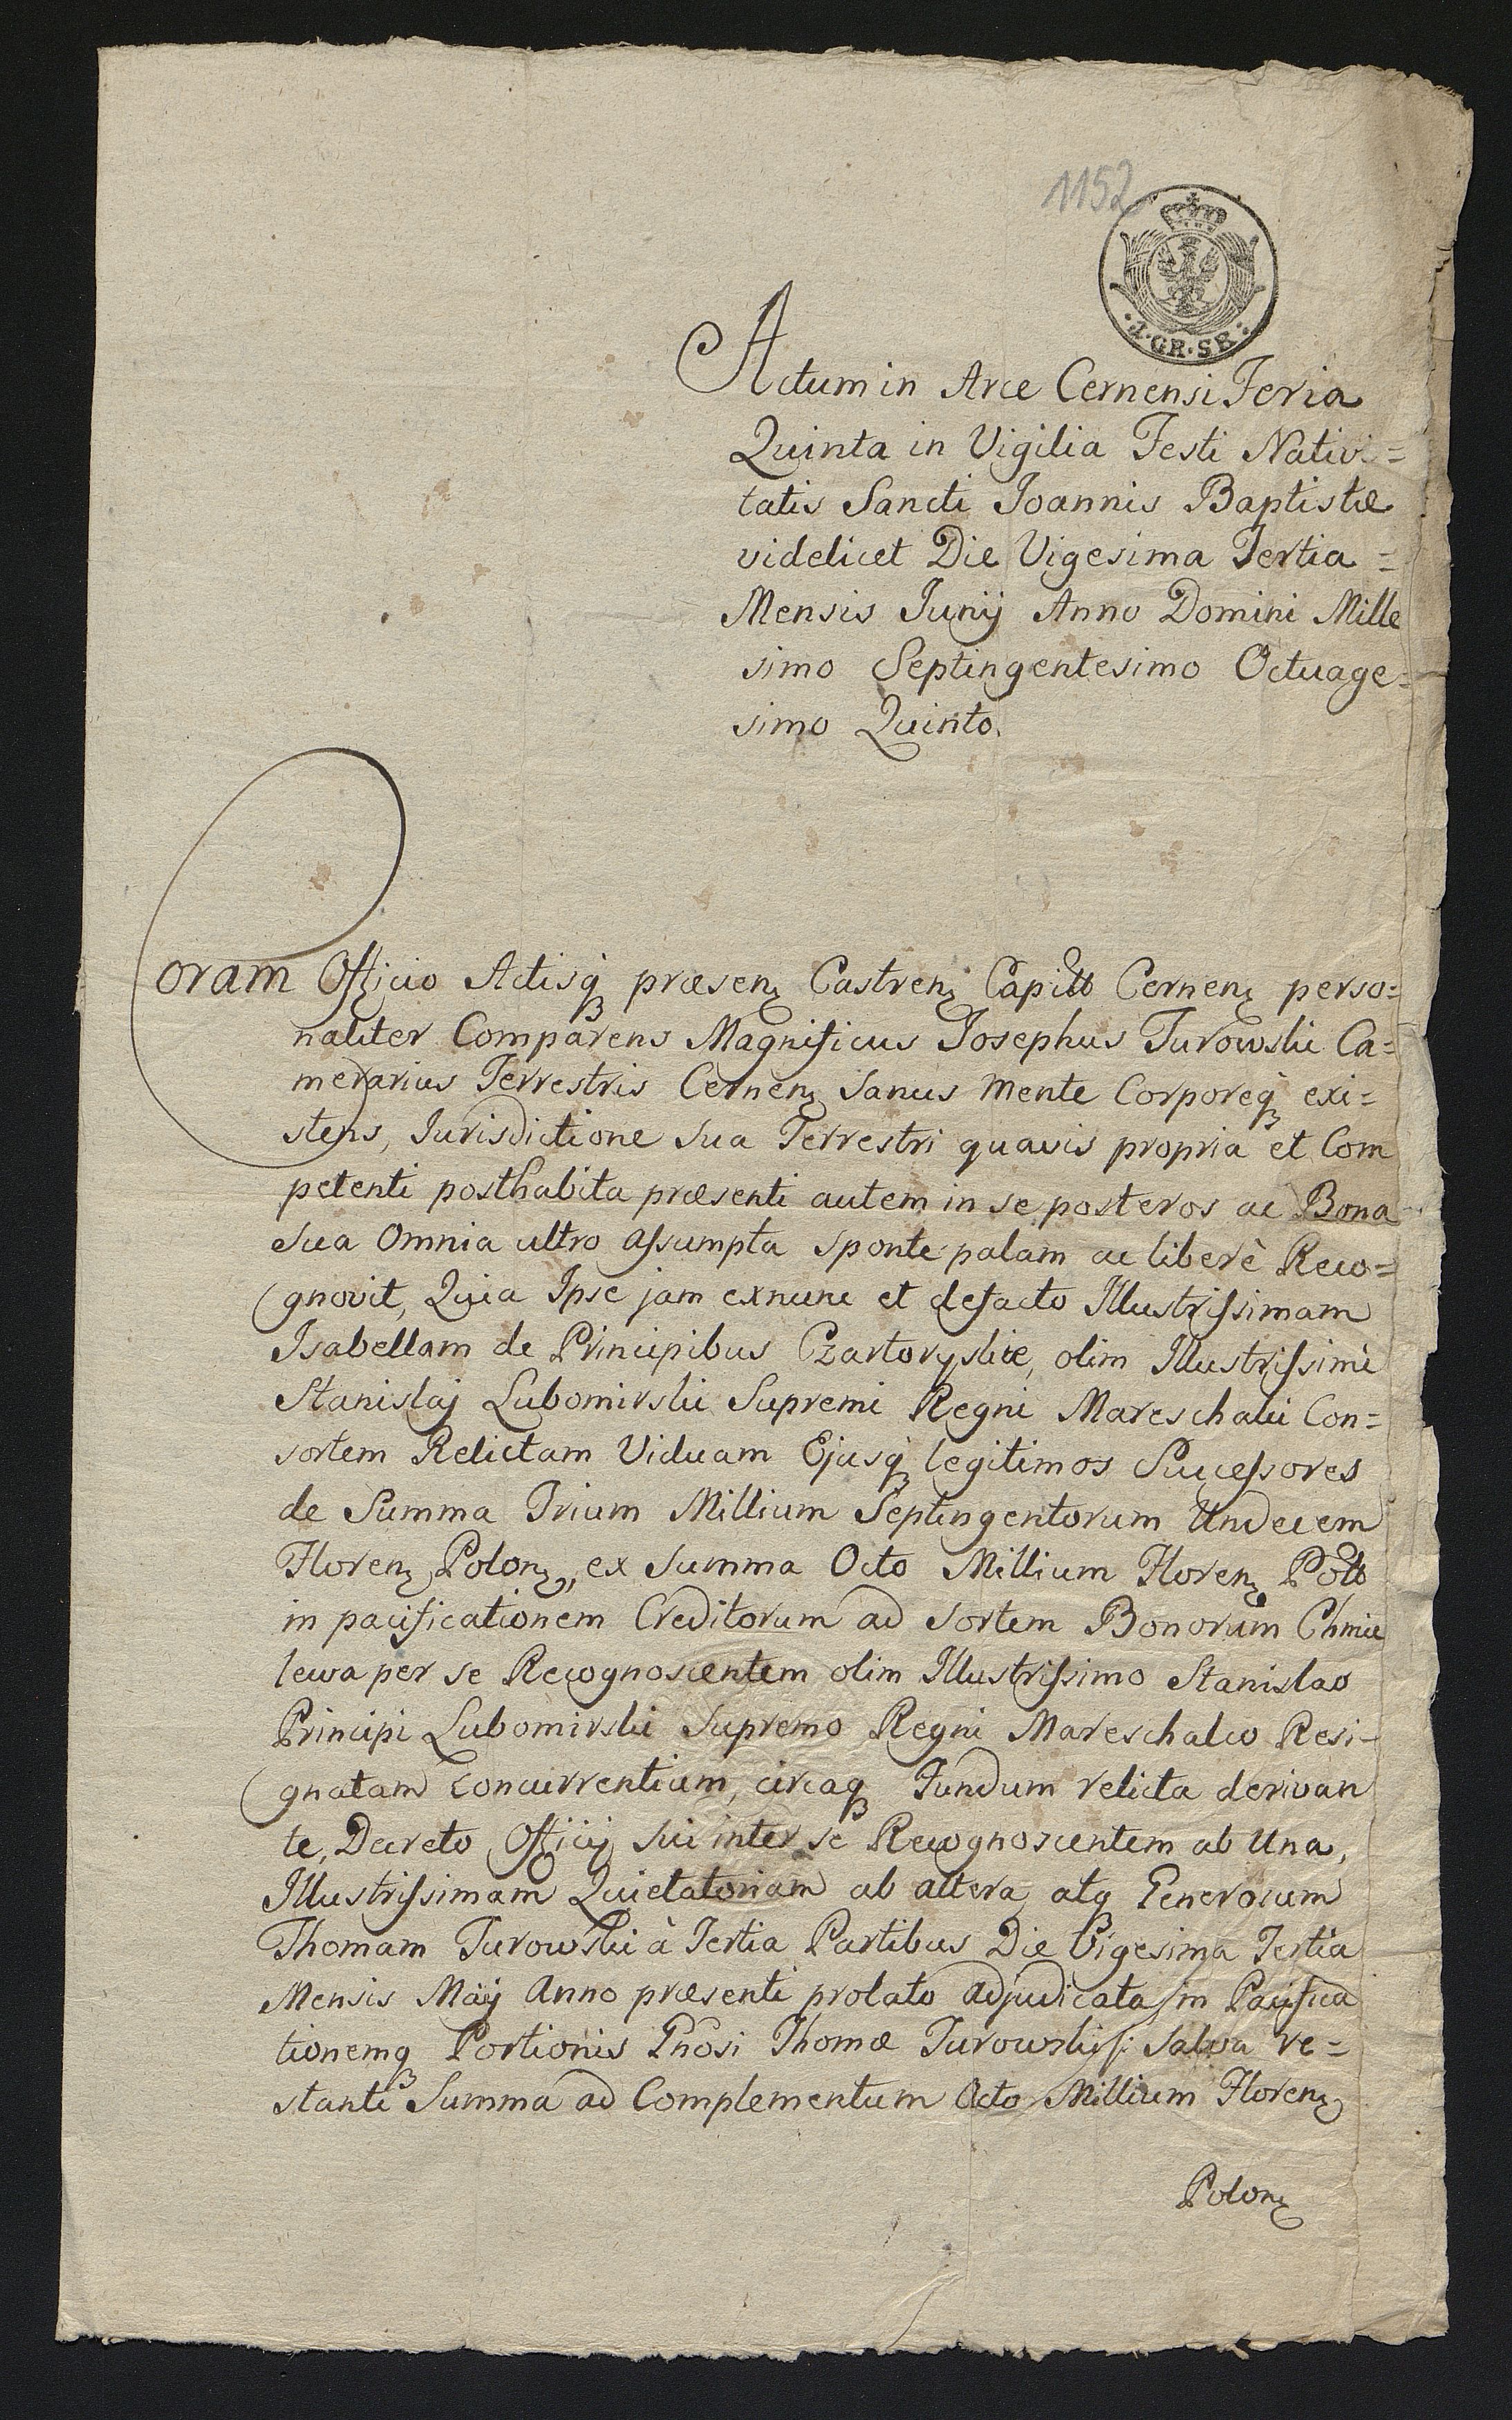 1152
1·GR·SR·
Actum in Arce Cernensi Feria
Quinta in Vigilia Festi Nativi=
tatis Sancti Joannis Baptistæ
videlicet Die Vigesima Tertia =
Mensis Junij Anno Domini Mille
simo Septingentesimo Octuage=
simo Quinto.
Coram Officio Actisq̃ præsenꝫ Castrenꝫ Capitt Cernenꝫ perso=
naliter Comparens Magnificus Josephus Turowski Ca=
merarius Terrestris Cernenꝫ Sanus Mente Corporeq̃ exi=
stens, Jurisdictione Sua Terrestri quavis propria et Com
petenti posthabita præsenti autem in se posteros ac Bona
Sua Omnia ultro assumpta sponte palam ac liberè Reco=
gnovit, Quia Ipse jam exnunc et defacto Illustrissimam
Isabellam de Principibus Czartoryskie, olim Illustrissimi
Stanislaj Lubomirski Supremi Regni Mareschalci Con=
sortem Relictam Viduam Ejusq̃ legitimos Successores
de Summa Trium Millium Septingentorum Undecem
Florenꝫ Polonꝫ, ex Summa Octo Millium Florenꝫ Poll
in pacificationem Creditorum ad Sortem Bonorum Chmie
lewa per se Recognoscentem olim Illustrissimo Stanislao
Principi Lubomirski Supremo Regni Mareschalco Resi-
gnatam concurrentium, circaq̃ Fundum relicta derivan
te, Decreto Officij Sui inter se Recognoscentem ab Una,
Illustrissimam Quietatoriam ab altera, atq̃ Generosum
Thomam Turowski à Tertia Partibus Die Vigesima Tertia
Mensis Maij Anno præsenti prolato adjudicata, in Pacifica
tionemq̃ Portionis Gnosi Thomæ Turowski /: Salva re=
stanti Summa ad Complementum Octo Millium Florenꝫ
Polonꝫ